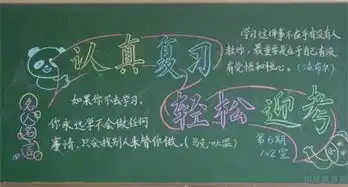 认真复习
轻松迎考
学习这件事不在乎有没有人
教你，最重要是在于自己有没
有觉悟和恒心。（法布尔）
名人名言
如果你不去学习，
你永远学不会做任何
事情，只会找别人来替你做。（马克·吐温）
第5期